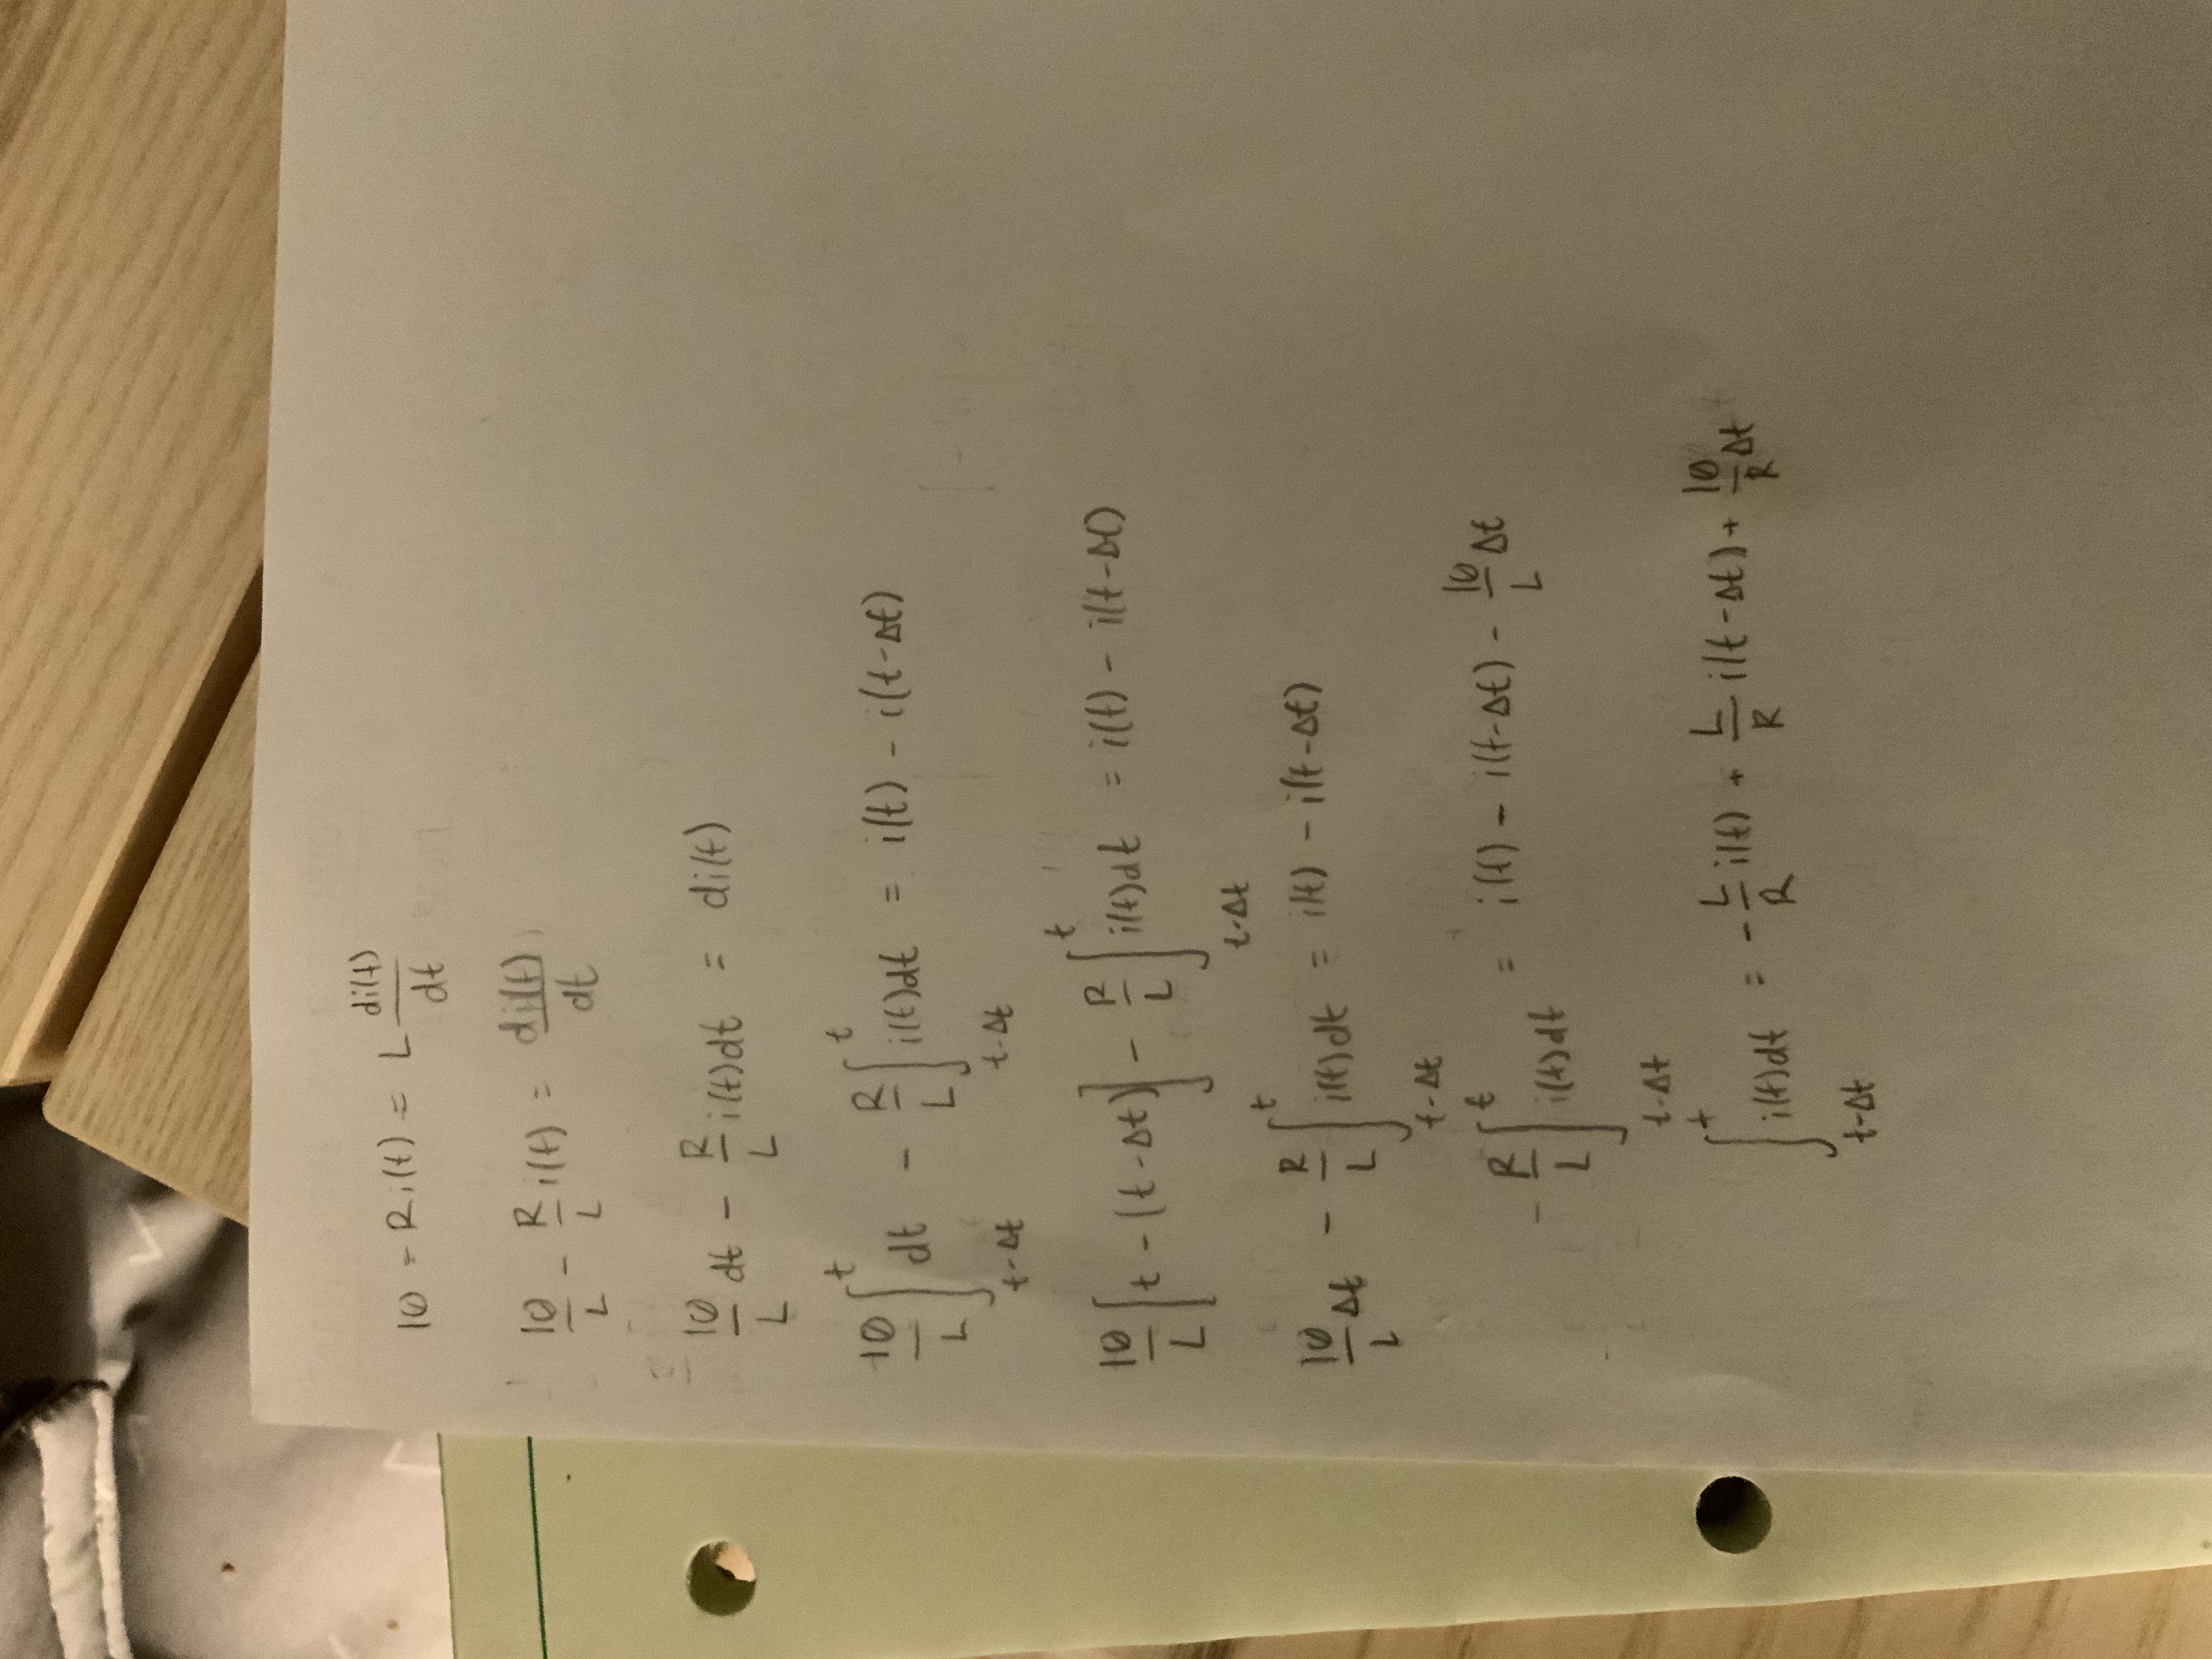 10 - Ri(t) = L di(t)/dt
10/L - R/L i(t) = di(t)/dt
10/L dt - R/L i(t)dt = di(t)
10/L ∫_{t-Δt}^{t} dt - R/L ∫_{t-Δt}^{t} i(t)dt = i(t) - i(t-Δt)
10/L [t - (t-Δt)] - R/L ∫_{t-Δt}^{t} i(t)dt = i(t) - i(t-Δt)
10/L Δt - R/L ∫_{t-Δt}^{t} i(t)dt = i(t) - i(t-Δt)
- R/L ∫_{t-Δt}^{t} i(t)dt = i(t) - i(t-Δt) - 10/L Δt
∫_{t-Δt}^{t} i(t)dt = - L/R i(t) + L/R i(t-Δt) + 10/R Δt